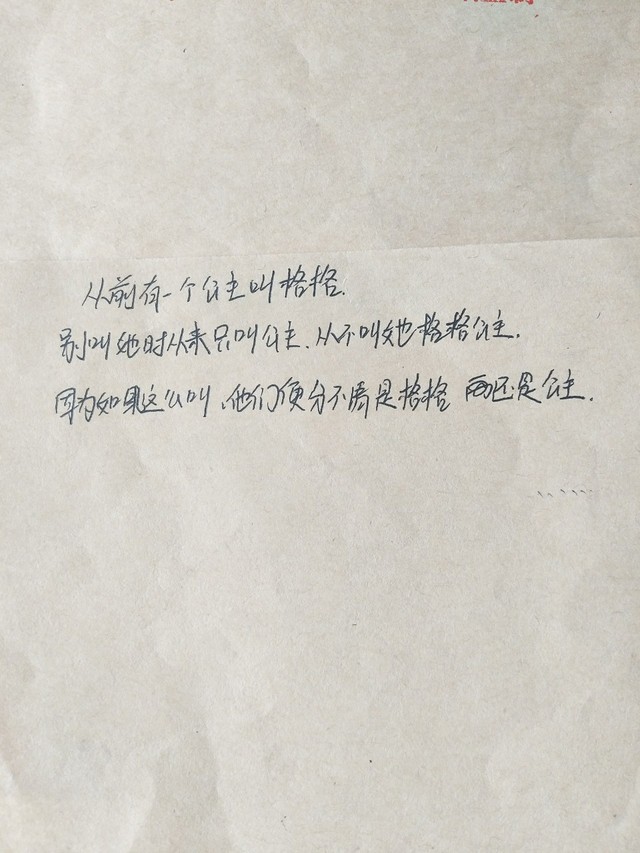 从前有一个公主叫格格.
别叫她时从来只叫公主、从不叫她格格公主.
因为如果这么叫、他们便分不清是格格 还是公主.
......